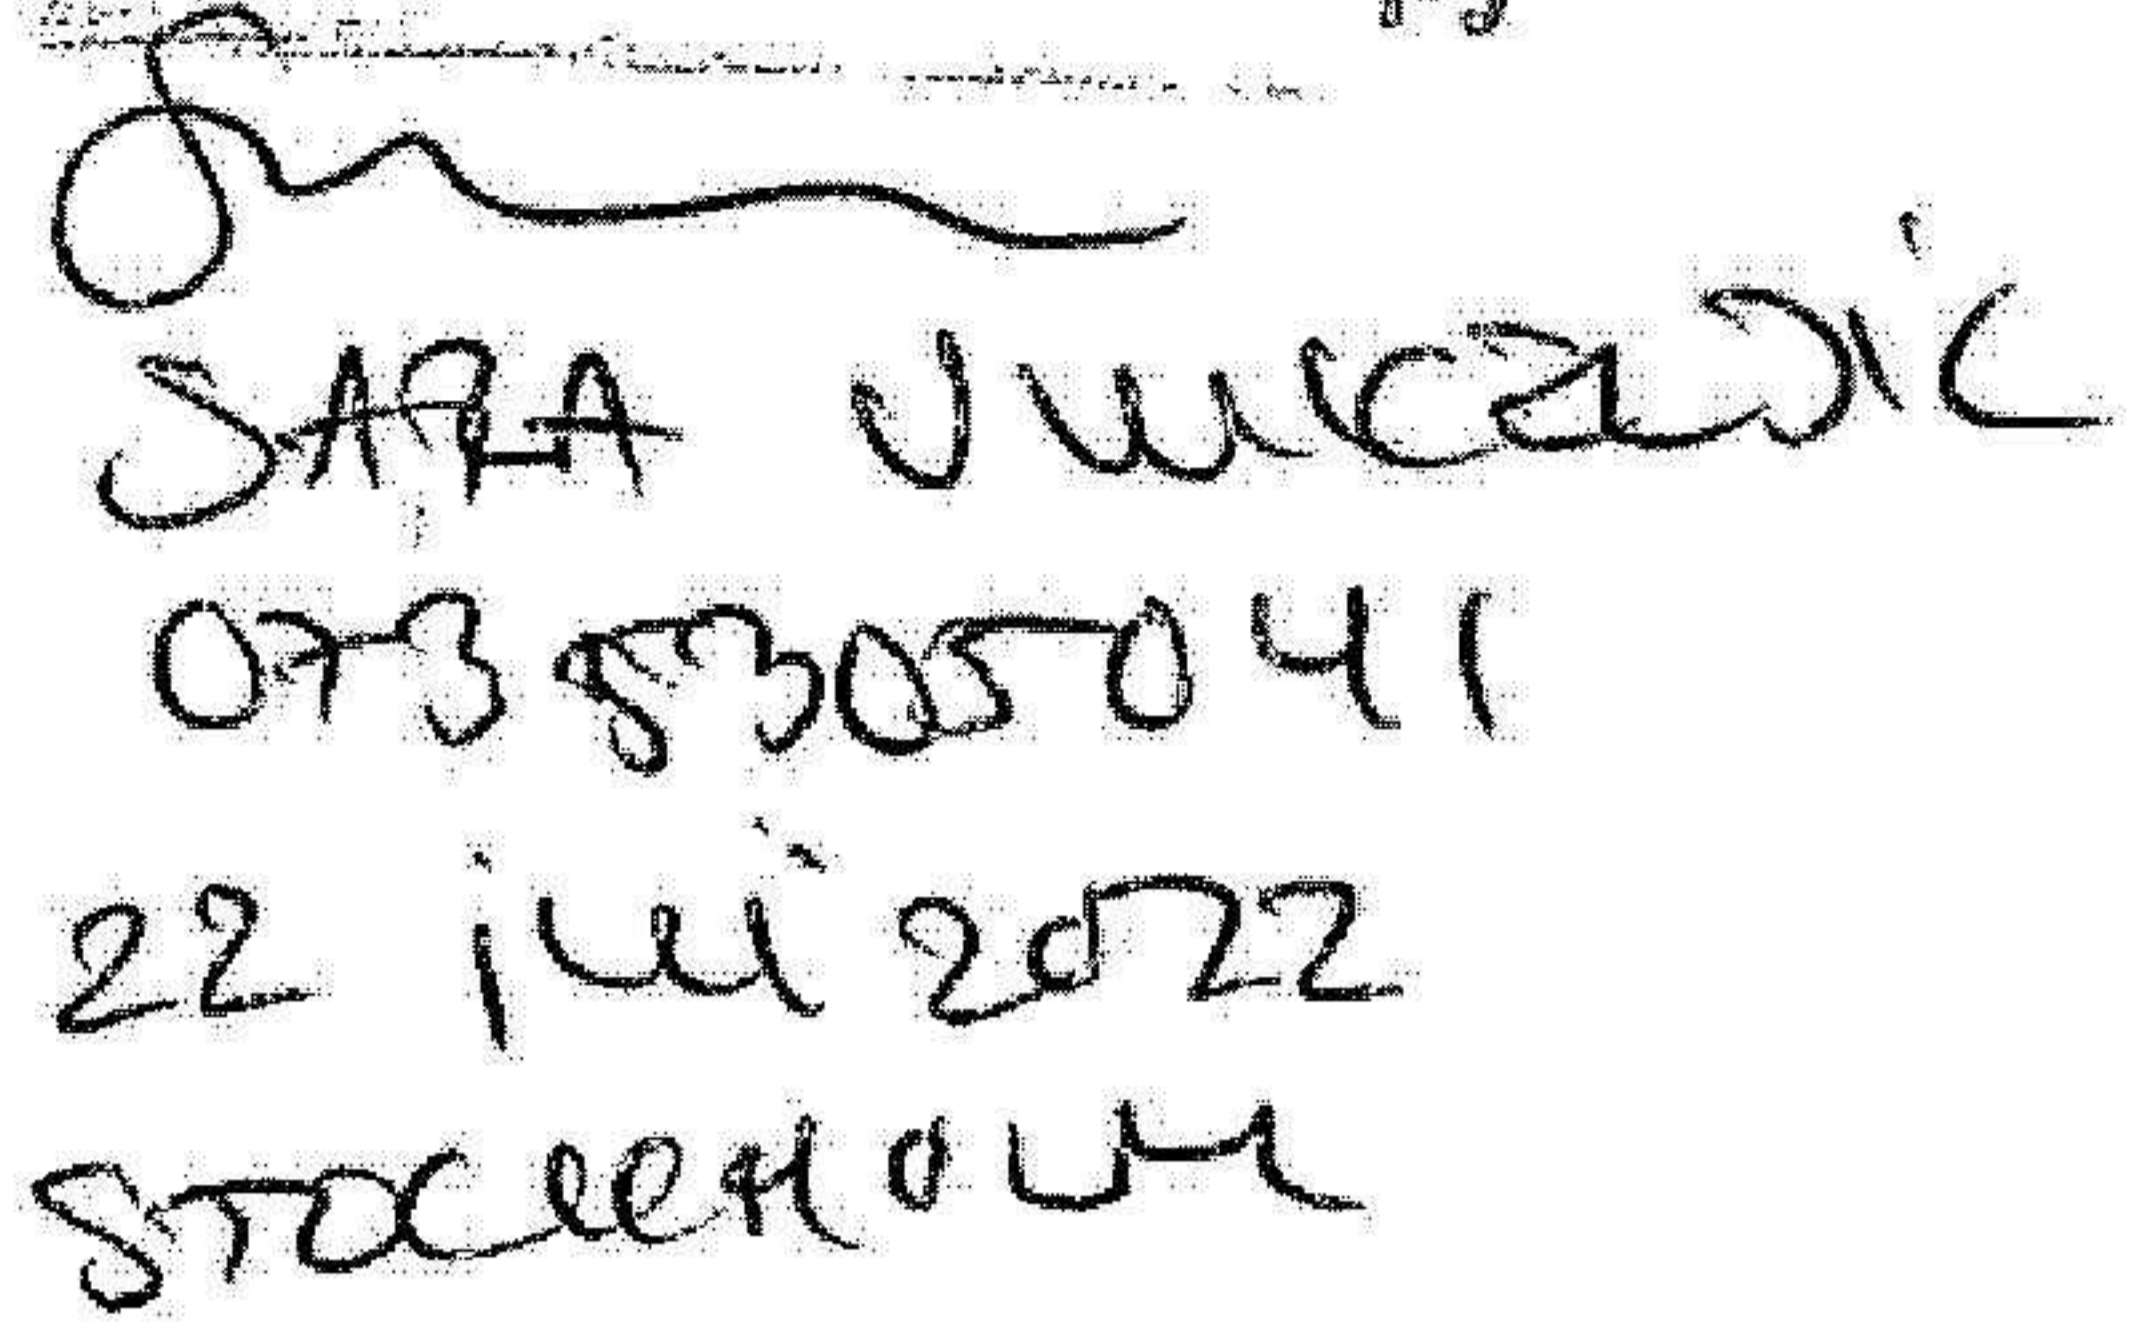 SARA
073 530 50 41
22 juli 2022
STOCKHOLM